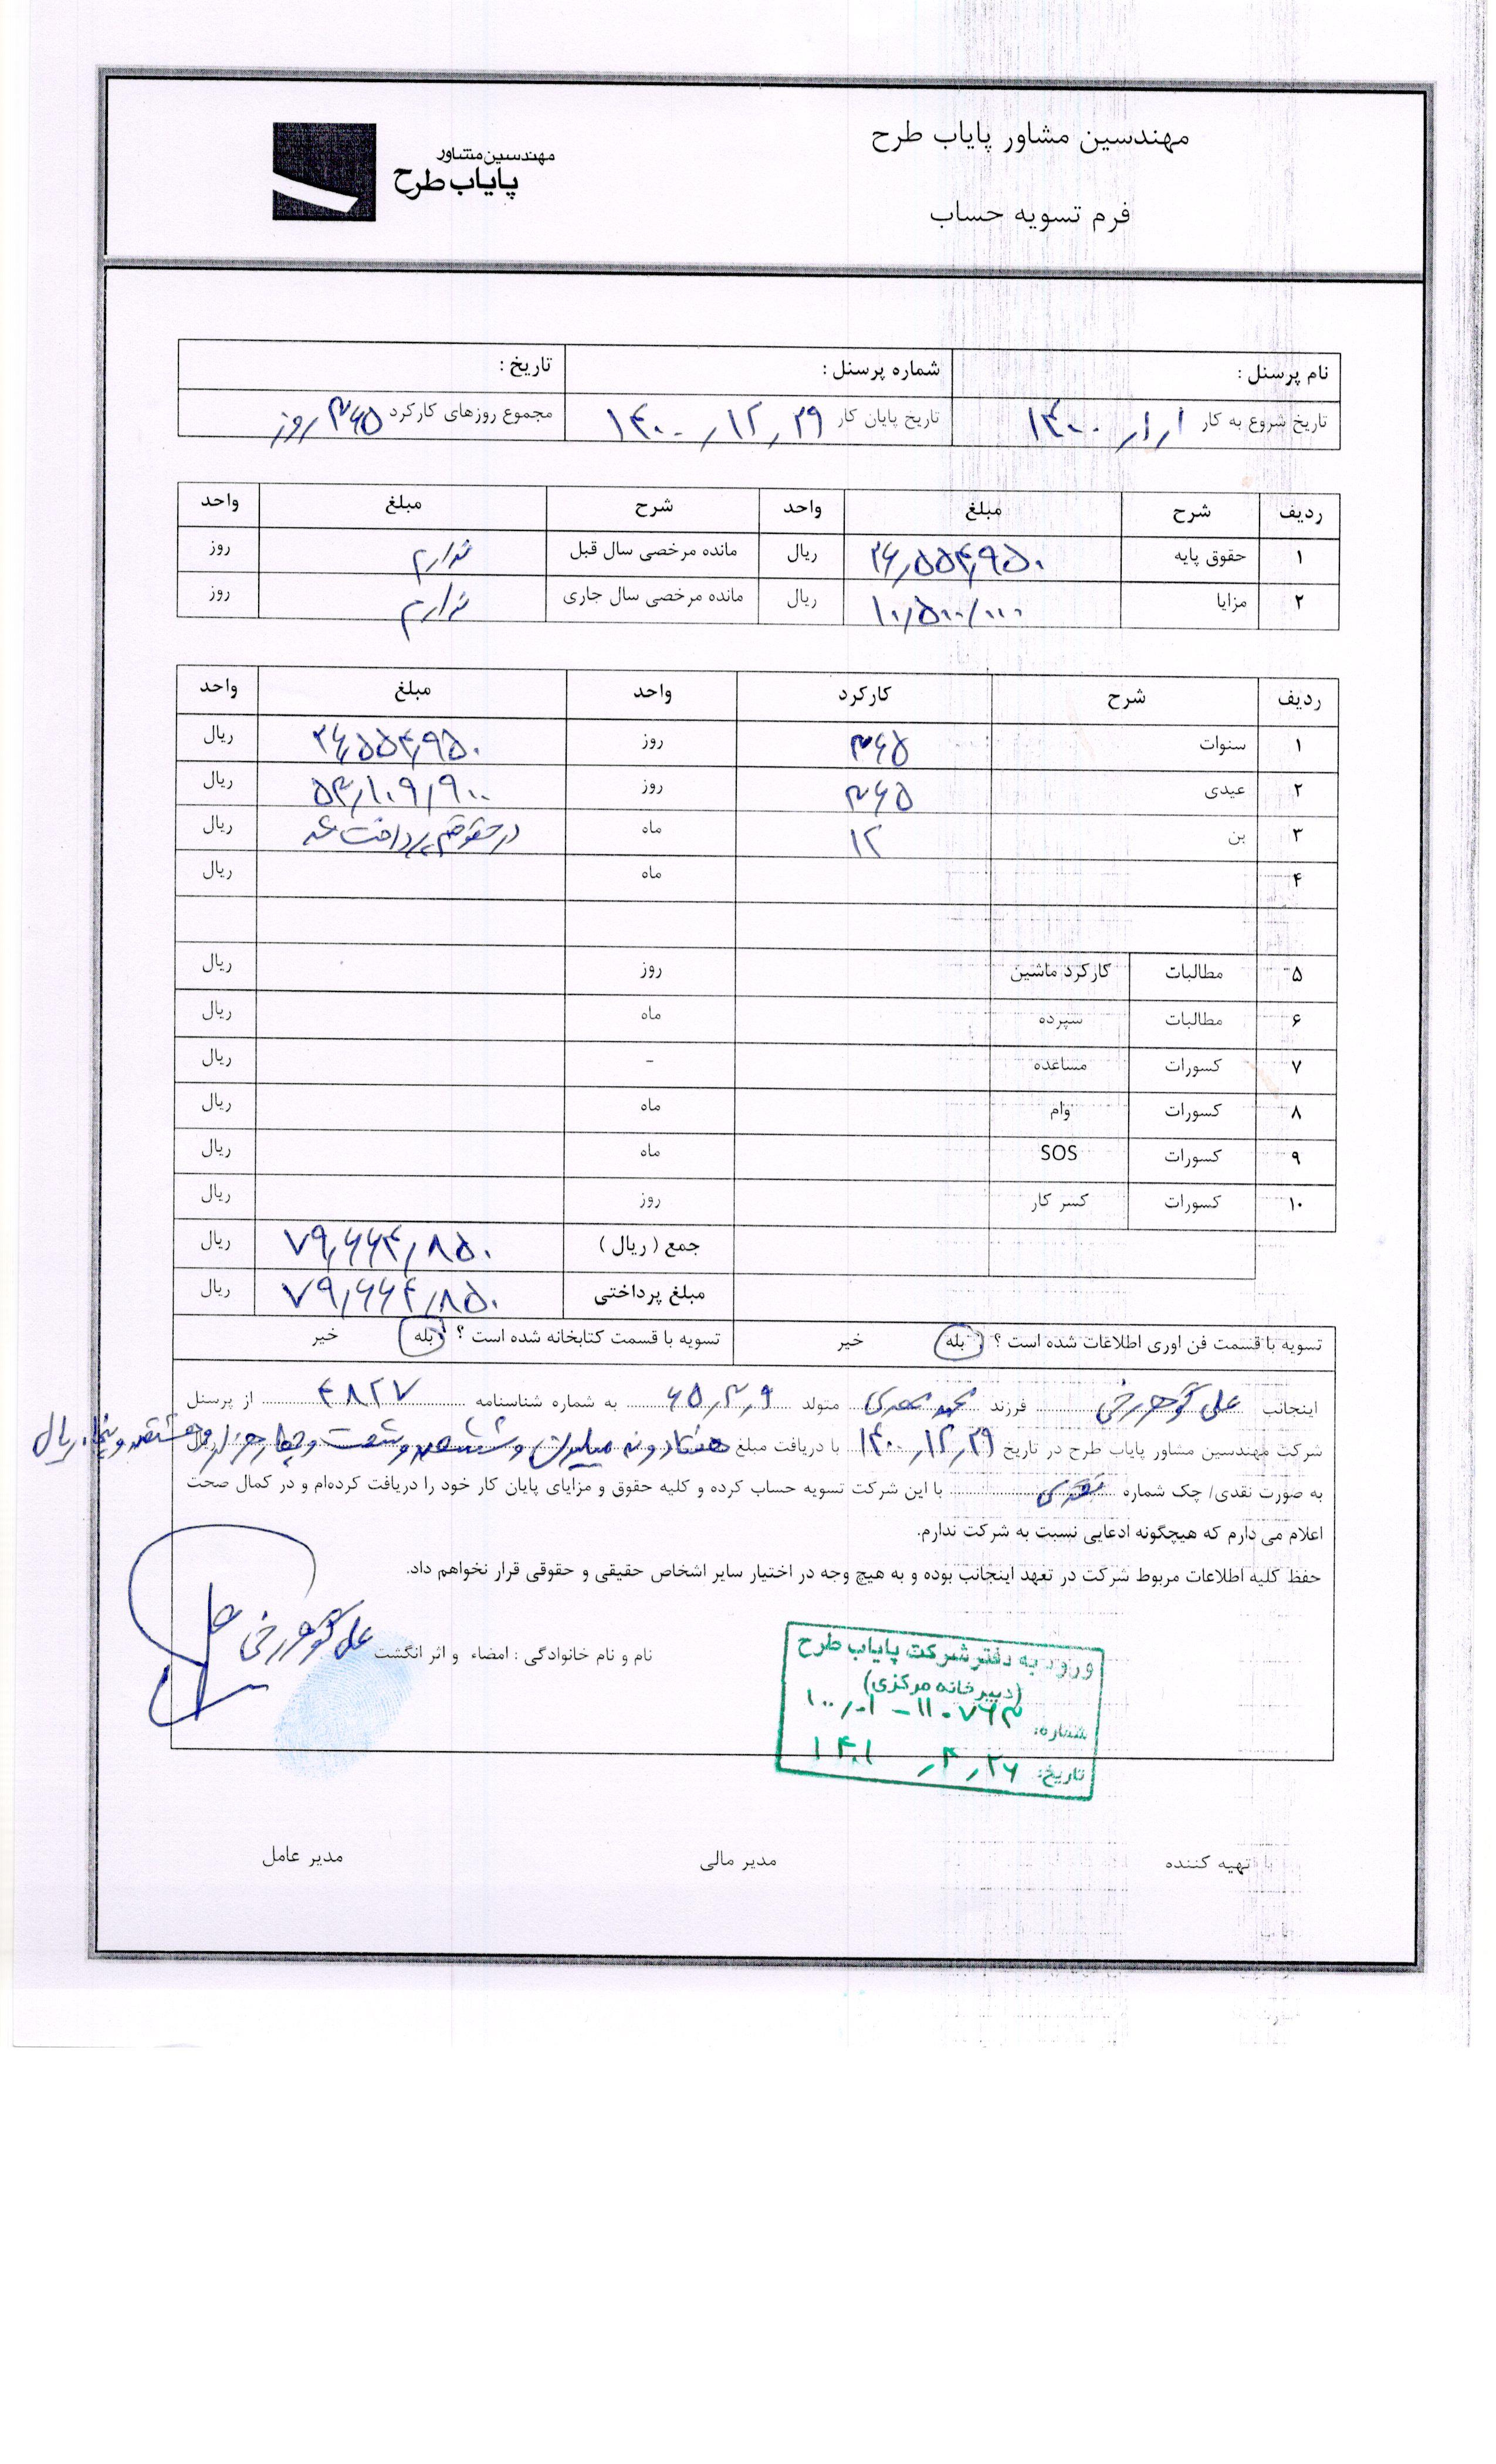 مهندسین مشاور پایاب طرح
مهندسین مشاور
پایاب طرح
فرم تسویه حساب
نام پرسنل :
شماره پرسنل :
تاریخ :
تاریخ شروع به کار ۱۴۰۰/۱/۱
تاریخ پایان کار ۱۴۰۰/۱۲/۲۹
مجموع روزهای کارکرد ۳۶۵ روز
ردیف شرح مبلغ واحد شرح مبلغ واحد
۱ حقوق پایه ۲۶٫۵۵۴٫۹۵۰ ریال مانده مرخصی سال قبل ندارم روز
۲ مزایا ۱۰٫۵۰۰/۰۰۰ ریال مانده مرخصی سال جاری ندارم روز
ردیف شرح کارکرد واحد مبلغ واحد
۱ سنوات ۳۶۵ روز ۲۶٫۵۵۴٫۹۵۰ ریال
۲ عیدی ۳۶۵ روز ۵۳٫۱۰۹٫۹۰۰ ریال
۳ بن ۱۲ ماه در حقوقم پرداخت شد ریال
۴ ماه ریال
۵ مطالبات کارکرد ماشین روز ریال
۶ مطالبات سپرده ماه ریال
۷ کسورات مساعده - ریال
۸ کسورات وام ماه ریال
۹ کسورات SOS ماه ریال
۱۰ کسورات کسر کار روز ریال
جمع ( ریال ) ۷۹٫۶۶۴٫۸۵۰ ریال
مبلغ پرداختی ۷۹٫۶۶۴٫۸۵۰ ریال
تسویه با قسمت فن اوری اطلاعات شده است ؟ بله خیر تسویه با قسمت کتابخانه شده است ؟ بله خیر
اینجانب علی گوهررخی فرزند متولد ۶۵٫۳٫۹ به شماره شناسنامه ۴۸۲۷ از پرسنل
شرکت مهندسین مشاور پایاب طرح در تاریخ ۱۴۰۰٫۱۲٫۲۹ با دریافت مبلغ هفتاد و نه میلیون و ششصد و شصت و چهار هزار و هشتصد و پنجاه ریال
به صورت نقدی/ چک شماره نقدی با این شرکت تسویه حساب کرده و کلیه حقوق و مزایای پایان کار خود را دریافت کرده‌ام و در کمال صحت
اعلام می دارم که هیچگونه ادعایی نسبت به شرکت ندارم.
حفظ کلیه اطلاعات مربوط شرکت در تعهد اینجانب بوده و به هیچ وجه در اختیار سایر اشخاص حقیقی و حقوقی قرار نخواهم داد.
نام و نام خانوادگی : امضاء و اثر انگشت علی گوهررخی
ورود به دفتر شرکت پایاب طرح
(دبیرخانه مرکزی)
شماره: ۱۰۰٫۰۱ - ۱۱۰۷۶۳
تاریخ: ۱۴۰۱٫۴٫۲۶
تهیه کننده مدیر مالی مدیر عامل